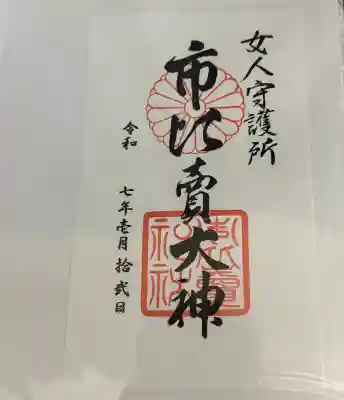 女人守護所
市比賣大神
令和
七年壱月拾弐日
市比賣
神社